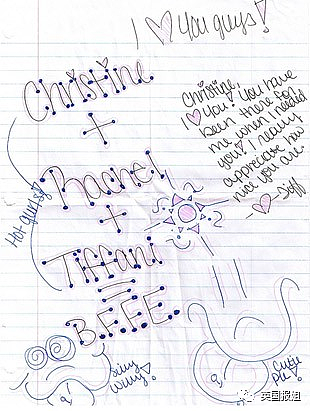 I ♡ You guys!
Christine
+
Rachel
+
Tiffani
=
B.F.F.E.
Hot gurls!
Christine,
I ♡ You! You have
been there for
me when I needed
you! I really
appreciate how
nice you are.
-♡- Tiff
Silly
Willy!
Cutie
Pie!
英国报姐